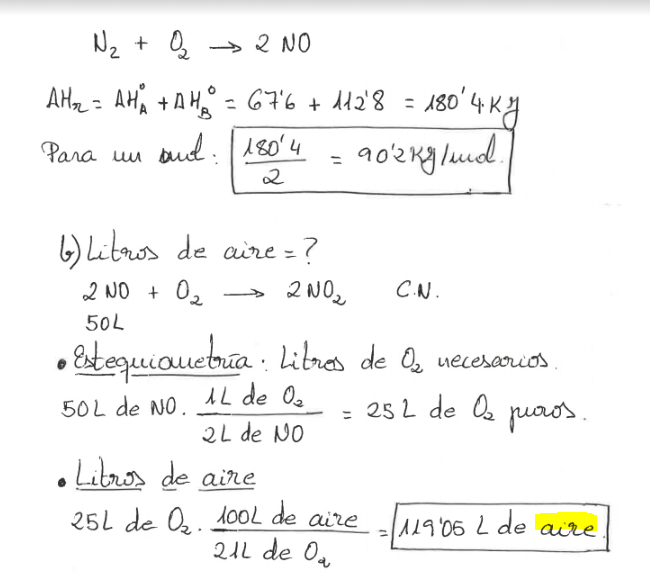 N₂ + O₂ → 2 NO
ΔHr = ΔH°A + ΔH°B = 67'6 + 112'8 = 180'4 KJ
Para un mol: 180'4 / 2 = 90'2 KJ/mol.
b) Litros de aire = ?
2 NO + O₂ → 2 NO₂ C.N.
50L
• Estequiometría: Litros de O₂ necesarios.
50L de NO · 1L de O₂ / 2L de NO = 25 L de O₂ puros.
• Litros de aire
25L de O₂ · 100L de aire / 21L de O₂ = 119'05 L de aire.